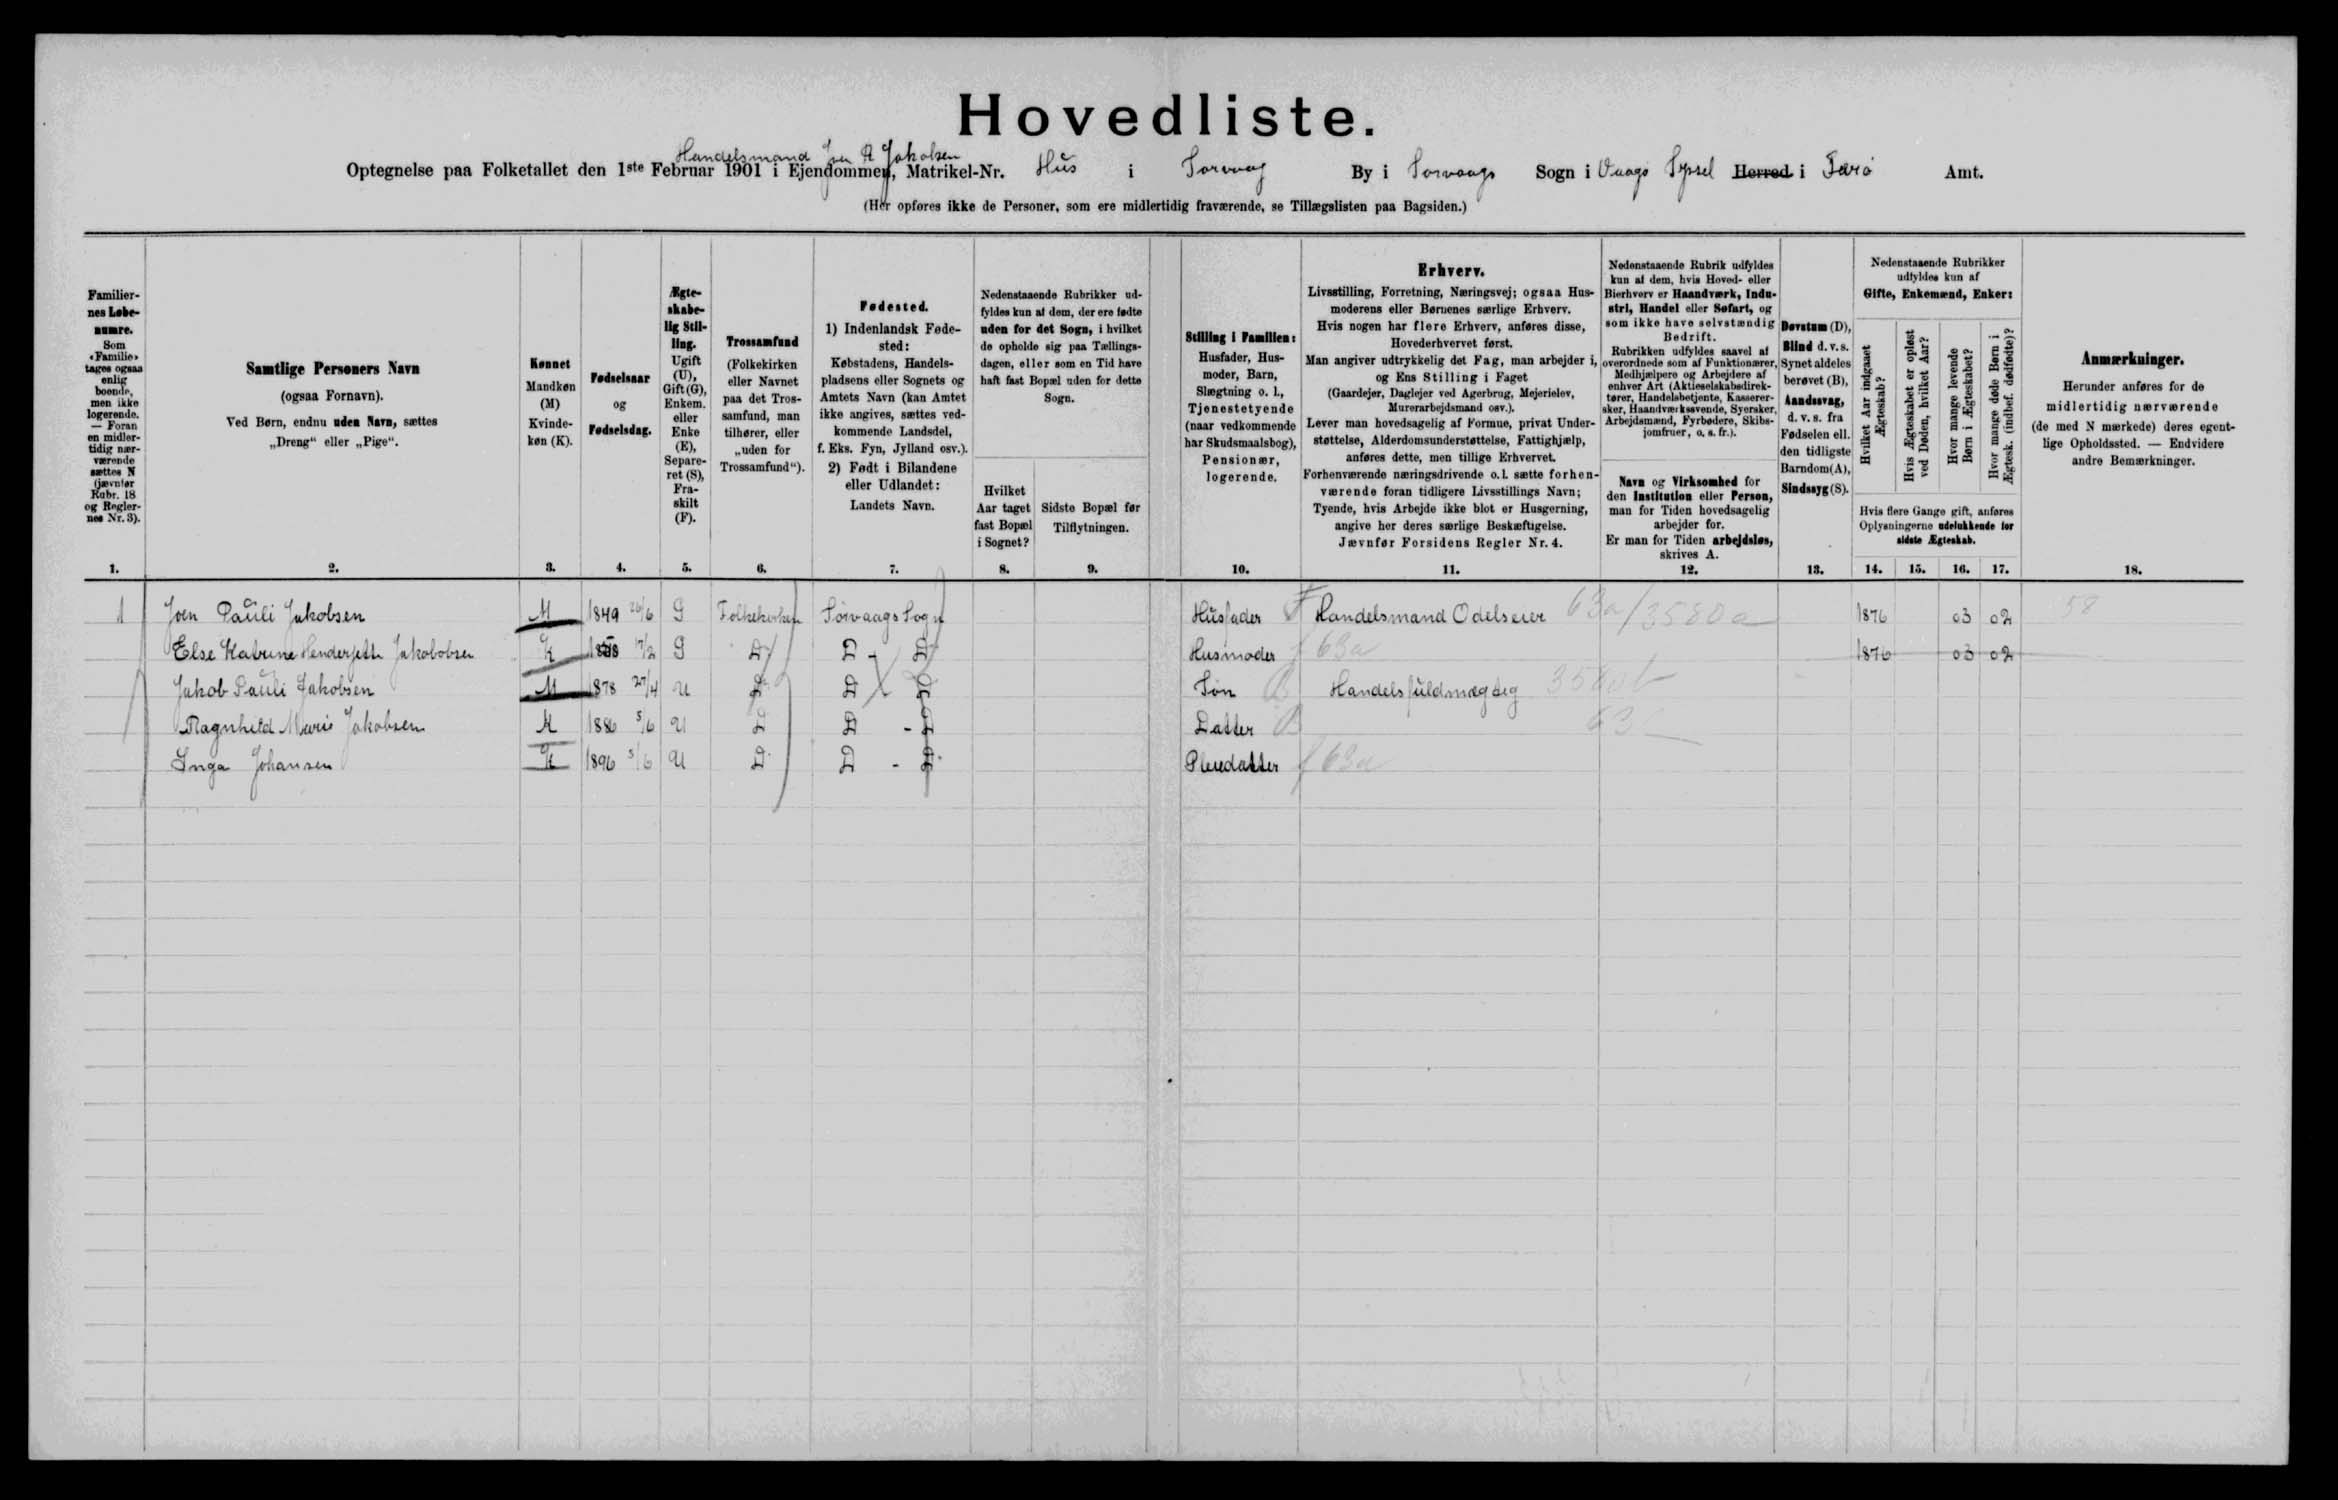 Hovedliste.
Handelsmand Joen P Jakobsen
Optegnelse paa Folketallet den 1ste Februar 1901 i Ejendommen, Matrikel-Nr. Hus i Sorvaag By i Sorvaags Sogn i Vaagø Sysel Herred i Færø Amt.
(Her opføres ikke de Personer, som ere midlertidig fraværende, se Tillægslisten paa Bagsiden.)
Familier-
nes Løbe-
numre.
Som
«Familie»
tages ogsaa
enlig
boende,
men ikke
logerende.
— Foran
en midler-
tidig nær-
værende
sættes N
(jævnfør
Rubr. 18
og Regler-
nes Nr. 3).
1.
Samtlige Personers Navn
(ogsaa Fornavn).
Ved Børn, endnu uden Navn, sættes
„Dreng“ eller „Pige“.
2.
Kønnet
Mandkøn
(M)
Kvinde-
køn (K).
3.
Fødselsaar
og
Fødselsdag.
4.
Ægte-
skabe-
lig Stil-
ling.
Ugift
(U),
Gift (G),
Enkem.
eller
Enke
(E),
Separe-
ret (S),
Fra-
skilt
(F).
5.
Trossamfund
(Folkekirken
eller Navnet
paa det Tros-
samfund, man
tilhører, eller
„uden for
Trossamfund“).
6.
Fødested.
1) Indenlandsk Føde-
sted:
Købstadens, Handels-
pladsens eller Sognets og
Amtets Navn (kan Amtet
ikke angives, sættes ved-
kommende Landsdel,
f. Eks. Fyn, Jylland osv.).
2) Født i Bilandene
eller Udlandet:
Landets Navn.
7.
Nedenstaaende Rubrikker ud-
fyldes kun af dem, der ere fødte
uden for det Sogn, i hvilket
de opholde sig paa Tællings-
dagen, eller som en Tid have
haft fast Bopæl uden for dette
Sogn.
Hvilket
Aar taget
fast Bopæl
i Sognet?
8.
Sidste Bopæl før
Tilflytningen.
9.
Stilling i Familien:
Husfader, Hus-
moder, Barn,
Slægtning o. l.,
Tjenestetyende
(naar vedkommende
har Skudsmaalsbog),
Pensionær,
logerende.
10.
Erhverv.
Livsstilling, Forretning, Næringsvej; ogsaa Hus-
moderens eller Børnenes særlige Erhverv.
Hvis nogen har flere Erhverv, anføres disse,
Hovederhvervet først.
Man angiver udtrykkelig det Fag, man arbejder i,
og Ens Stilling i Faget
(Gaardejer, Daglejer ved Agerbrug, Mejerielev,
Murerarbejdsmand osv.).
Lever man hovedsagelig af Formue, privat Under-
støttelse, Alderdomsunderstøttelse, Fattighjælp,
anføres dette, men tillige Erhvervet.
Forhenværende næringsdrivende o. l. sætte forhen-
værende foran tidligere Livsstillings Navn;
Tyende, hvis Arbejde ikke blot er Husgerning,
angive her deres særlige Beskæftigelse.
Jævnfør Forsidens Regler Nr. 4.
11.
Nedenstaaende Rubrik udfyldes
kun af dem, hvis Hoved- eller
Bierhverv er Haandværk, Indu-
stri, Handel eller Søfart, og
som ikke have selvstændig
Bedrift.
Rubrikken udfyldes saavel af
overordnede som af Funktionærer,
Medhjælpere og Arbejdere af
enhver Art (Aktieselskabsdirek-
tører, Handelsbetjente, Kasserer-
sker, Haandværkssvende, Syersker,
Arbejdsmænd, Fyrbødere, Skibs-
jomfruer, o. s. fr.).
Navn og Virksomhed for
den Institution eller Person,
man for Tiden hovedsagelig
arbejder for.
Er man for Tiden arbejdsløs,
skrives A.
12.
Døvstum (D),
Blind d. v. s.
Synet aldeles
berøvet (B),
Aandssvag,
d. v. s. fra
Fødselen ell.
den tidligste
Barndom (A),
Sindssyg (S).
13.
Nedenstaaende Rubrikker
udfyldes kun af
Gifte, Enkemænd, Enker:
Hvilket Aar indgaaet
Ægteskab?
Hvis Ægteskabet er opløst
ved Døden, hvilket Aar?
Hvor mange levende
Børn i Ægteskabet?
Hvor mange døde Børn i
Ægtesk. (indbef. dødfødte)?
Hvis flere Gange gift, anføres
Oplysningerne udelukkende for
sidste Ægteskab.
14. 15. 16. 17.
Anmærkninger.
Herunder anføres for de
midlertidig nærværende
(de med N mærkede) deres egent-
lige Opholdssted. — Endvidere
andre Bemærkninger.
18.
1 Joen Pauli Jakobsen M 1849 26/6 G Folkekirken Sørvaags Sogn Husfader F Handelsmand Odelseier 63a/3580a 1876 03 02 58
Else Katrine Henderjette Jakobobsen K 17/2 G D D - D Husmoder f 63a 1876 03 02
Jakob Pauli Jakobsen M 1878 27/4 U D D - D Søn B Handelsfuldmægtig
Ragnhild Marie Jakobsen K 1886 5/6 U D D - D Datter B 63
Inga Johansen K 1896 5/6 U D D - D Pleiedatter f 63a